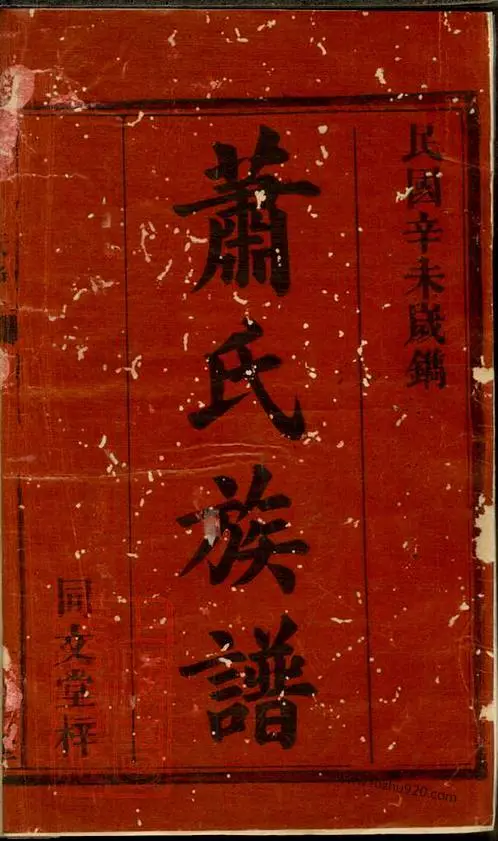 民國辛未歲鐫
蕭氏族譜
同文堂梓
www.mahu920.com